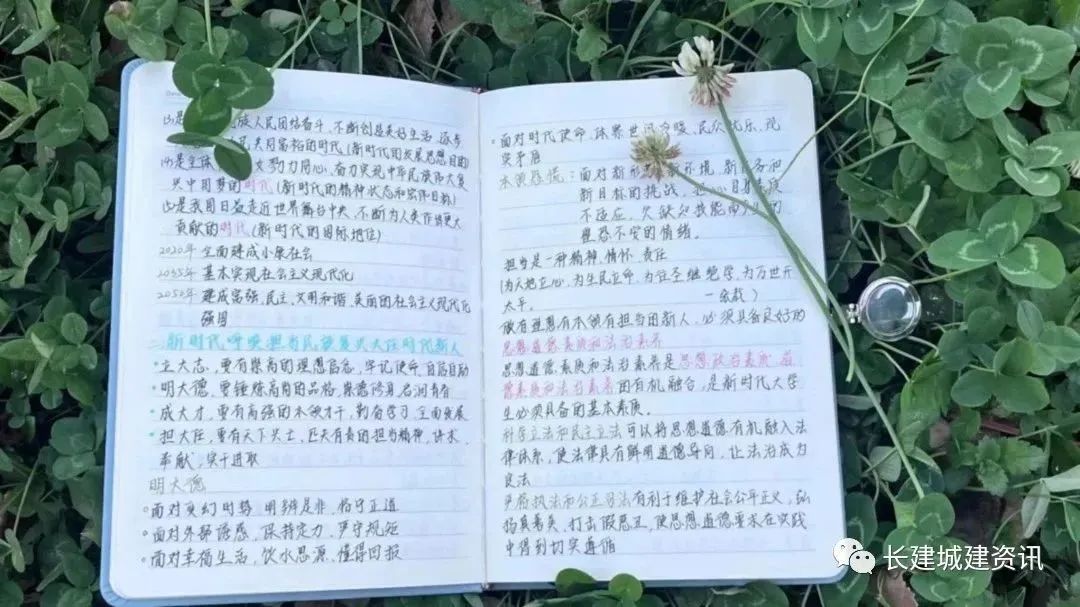 (3)是 族人民团结奋斗、不断创造美好生活、逐步
民共同富裕的时代(新时代的发展思想目的
(4)是全体 女勠力同心、奋力实现中华民族伟大复
兴中国梦的时代(新时代的精神状态和宏伟目标)
(5)是我国日益走近世界舞台中央、不断为人类作出更大
贡献的时代(新时代的国际地位)
2020年 全面建成小康社会
2035年 基本实现社会主义现代化
2050年 建成富强、民主、文明和谐、美丽的社会主义现代化
强国
二、新时代呼唤担当民族复兴大任时代新人
·立大志,要有崇高的理想信念,牢记使命,自信自励
·明大德,要锤炼高尚的品格,崇德修身,启润青春
·成大才,要有高强的本领才干,勤奋学习,全面发展
·担大任,要有天下兴亡、匹夫有责的担当精神,讲求
奉献,实干进取
明大德
◦面对变幻时势 明辨是非、恪守正道
◦面对外部诱惑、保持定力、严守规矩
◦面对幸福生活、饮水思源、懂得回报
◦面对时代使命、体察世间冷暖、民众忧乐、现
实矛盾
本领恐慌:面对新形 环境、新任务和
新目标的挑战,
不适应,欠缺知识能而产生的
惶恐不安的情绪。
担当是一种精神、情怀、责任
(为天地立心,为生民立命,为往圣继绝学,为万世开
太平。 —余载)
做有理想有本领有担当的新人,必须具备良好的
思想道德素质和法治素养
思想道德素质和法治素养是思想政治素质、道
德素质和法治素养的有机融合,是新时代大学
生必须具备的基本素质。
科学立法和民主立法可以将思想道德有机融入法
律体系,使法律具有鲜明道德导向,让法治成为
良法
严格执法和公正司法有利于维护社会公平正义,弘
扬真善美、打击假恶丑,使思想道德要求在实践
中得到切实遵循
长建城建资讯